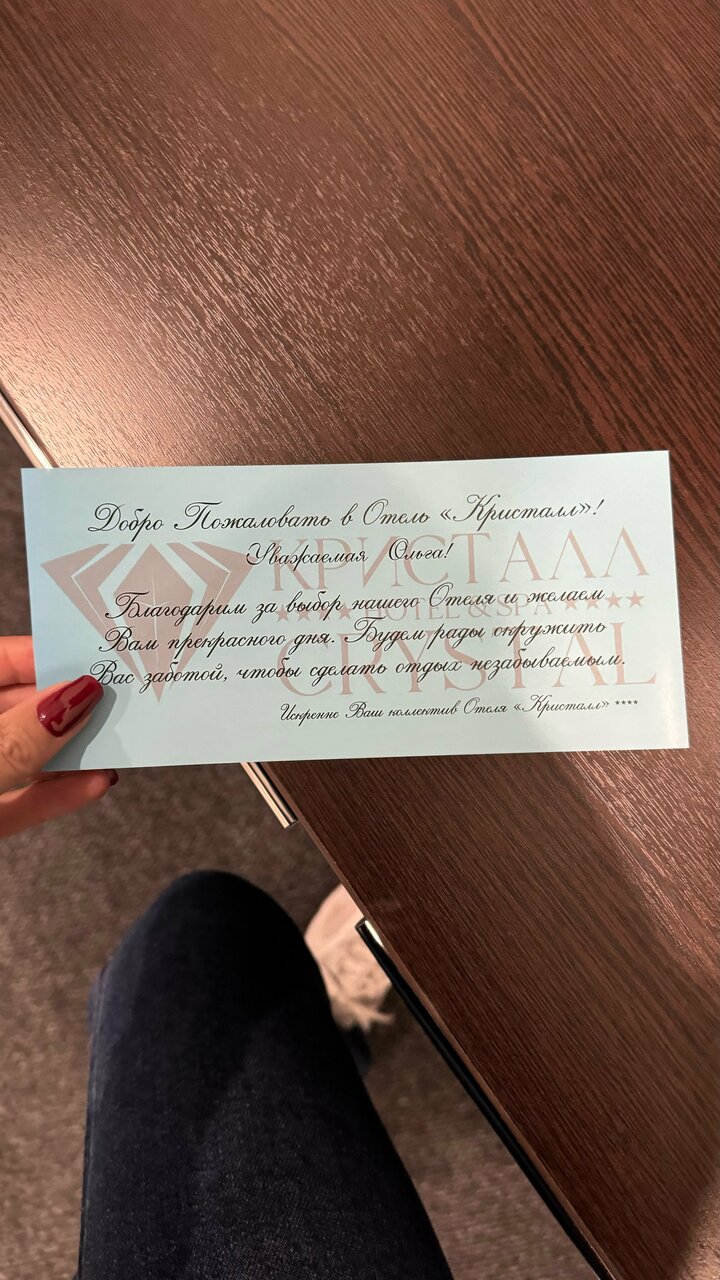 Добро Пожаловать в Отель «Кристалл»!
Уважаемая Ольга!
КРИСТАЛЛ
Благодарим за выбор нашего Отеля и желаем
★★★★ HOTEL & SPA ★★★★
Вам прекрасного дня. Будем рады окружить
CRYSTAL
Вас заботой, чтобы сделать отдых незабываемым.
Искренне Ваш коллектив Отеля «Кристалл» ****